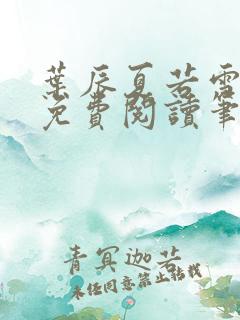 葉辰夏若雪
免費閱讀筆
青冥迦若
未經同意禁止轉載